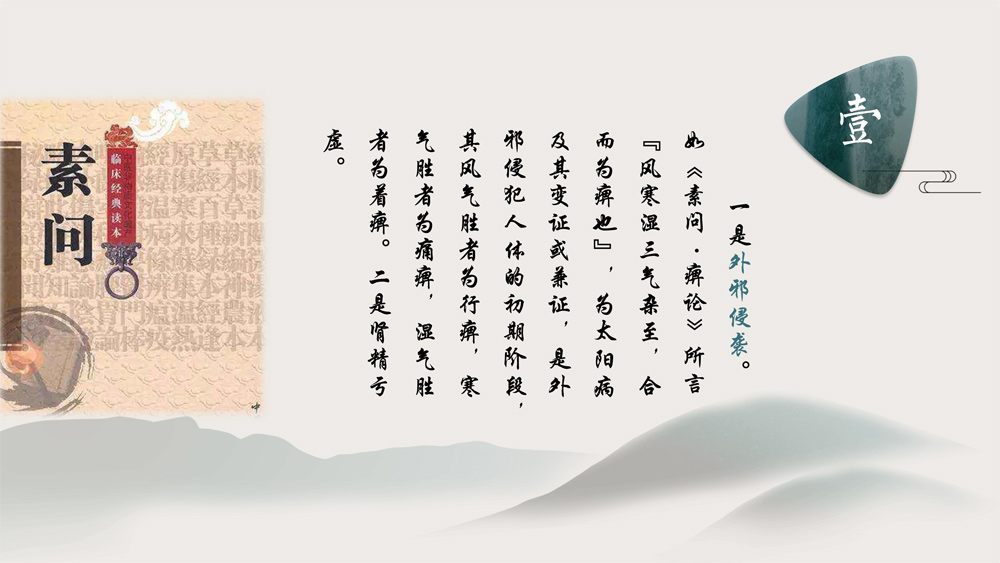 壹
一是外邪侵袭。
如《素问·痹论》所言
『风寒湿三气杂至，合
而为痹也』，为太阳病
及其变证或兼证，是外
邪侵犯人体的初期阶段，
其风气胜者为行痹，寒
气胜者为痛痹，湿气胜
者为着痹。二是肾精亏
虚。
临床经典读本
素问